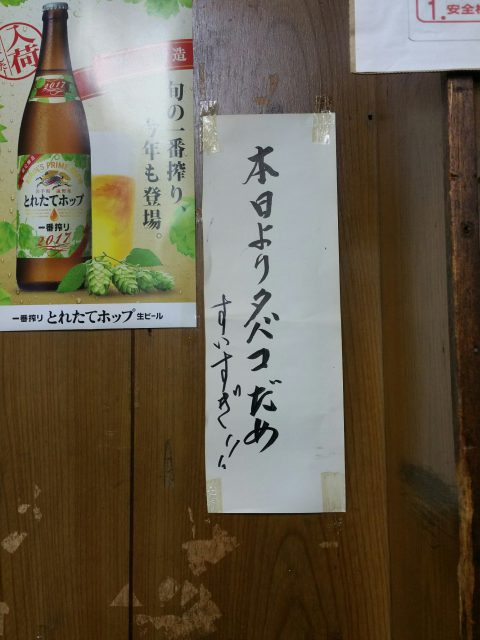 入荷
造
旬の一番搾り、
今年も登場。
2017
KIRIN'S PRIME
とれたてホップ
一番搾り
2017
一番搾り とれたてホップ 生ビール
本日よりタバコだめ
すいすぎ!!
1.安全